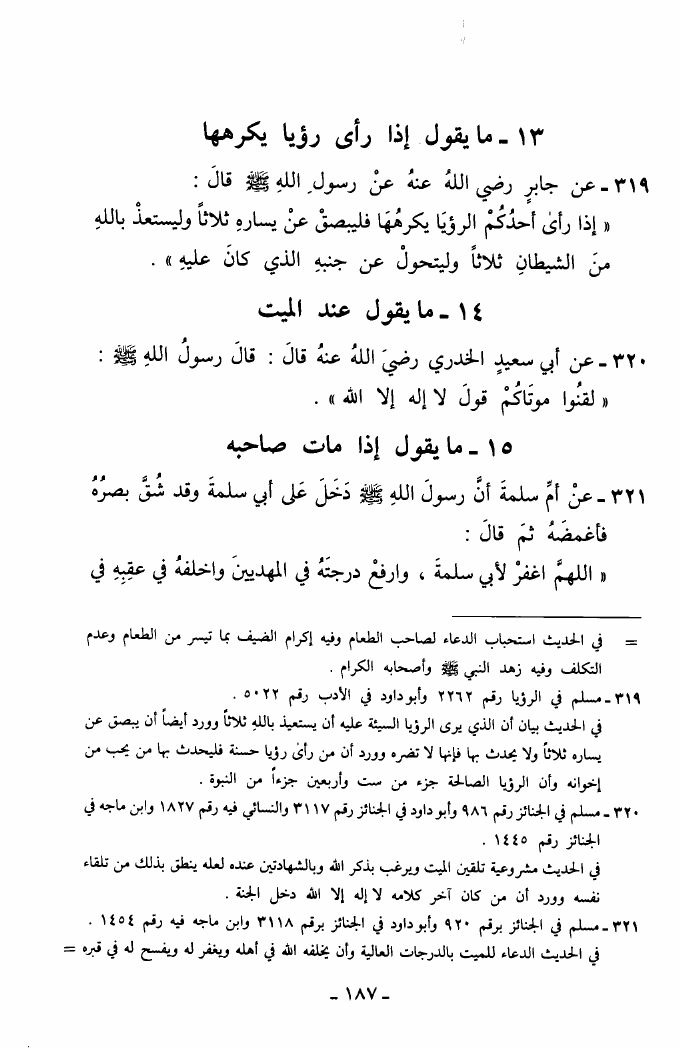 ١٣ - ما يقول إذا رأى رؤيا يكرهها
٣١٩ - عن جابرٍ رضي اللهُ عنهُ عنْ رسولِ اللهِ ﷺ قالَ :
« إذا رأىٰ أحدُكُمْ الرؤيَا يكرهُهَا فليبصقْ عنْ يسارهِ ثلاثاً وليستعذْ باللهِ
منَ الشيطانِ ثلاثاً وليتحولْ عن جنبهِ الذي كانَ عليهِ » .
١٤ - ما يقول عند الميت
٣٢٠ - عن أبي سعيدٍ الخدري رضيَ اللهُ عنهُ قالَ : قالَ رسولُ اللهِ ﷺ :
« لقنُوا موتَاكُمْ قولَ لا إله إلا الله » .
١٥ - ما يقول إذا مات صاحبه
٣٢١ - عنْ أمِّ سلمةَ أنَّ رسولَ اللهِ ﷺ دَخَلَ عَلى أبي سلمةَ وقد شُقَّ بصرُهُ
فأغمضَهُ ثمَ قالَ :
« اللهمَّ اغفرْ لأبي سلمةَ ، وارفعْ درجتَهُ في المهديينَ واخلفهُ في عقِبِهِ في
= في الحديث استحباب الدعاء لصاحب الطعام وفيه إكرام الضيف بما تيسر من الطعام وعدم
التكلف وفيه زهد النبي ﷺ وأصحابه الكرام .
٣١٩ - مسلم في الرؤيا رقم ٢٢٦٢ وأبو داود في الأدب رقم ٥٠٢٢ .
في الحديث بيان أن الذي يرى الرؤيا السيئة عليه أن يستعيذ باللهِ ثلاثاً وورد أيضاً أن يبصق عن
يساره ثلاثاً ولا يحدث بها فإنها لا تضره وورد أن من رأىٰ رؤيا حسنة فليحدث بها من يحب من
إخوانه وأن الرؤيا الصالحة جزء من ست وأربعين جزءاً من النبوة .
٣٢٠ - مسلم في الجنائز رقم ٩٨٦ وأبو داود في الجنائز رقم ٣١١٧ والنسائي فيه رقم ١٨٢٧ وابن ماجه في
الجنائز رقم ١٤٤٥ .
في الحديث مشروعية تلقين الميت ويرغب بذكر الله وبالشهادتين عنده لعله ينطق بذلك من تلقاء
نفسه وورد أن من كان آخر كلامه لا إله إلا الله دخل الجنة .
٣٢١ - مسلم في الجنائز برقم ٩٢٠ وأبو داود في الجنائز برقم ٣١١٨ وابن ماجه فيه رقم ١٤٥٤ .
في الحديث الدعاء للميت بالدرجات العالية وأن يخلفه الله في أهله ويغفر له ويفسح له في قبره =
- ١٨٧ -